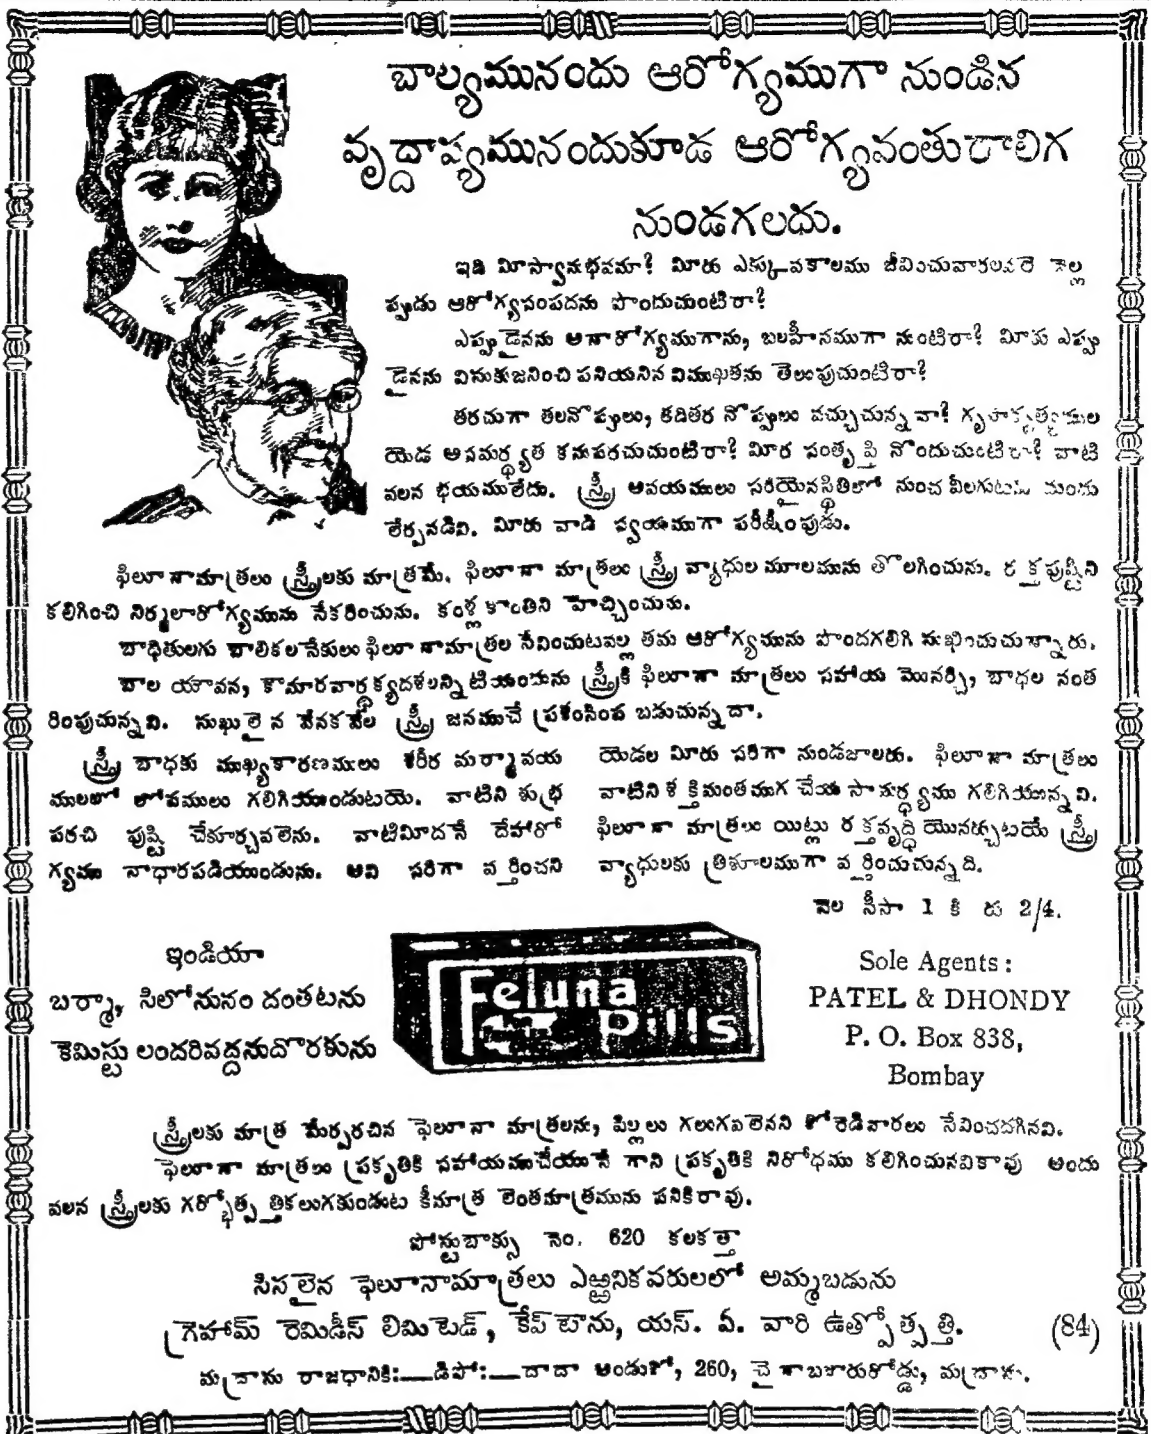 బాల్యమునందు ఆరోగ్యముగా నుండిన
వృద్దాప్యమునందుకూడ ఆరోగ్యవంతురాలిగ
నుండగలదు.
ఇది మీస్వానుభవమా? మీరు ఎక్కువకాలము జీవించువారలవలె నెల్ల
ప్పుడు ఆరోగ్యసంపదను పొందుచుంటిరా?
ఎప్పుడైనను అనారోగ్యముగాను, బలహీనముగా నుంటిరా? మీకు ఎప్పు
డైనను విసుకుజనించి పనియనిన విముఖతను తెలుపుచుంటిరా?
తరచుగా తలనొప్పులు, కడితర నొప్పులు వచ్చుచున్నవా? గృహకృత్యముల
యెడ అసమర్థ్యత కనుపరచుచుంటిరా? మీర సంతృప్తి నొందుచుంటిరా? వాటి
వలన భయములేదు. స్త్రీ అవయములు సరియైనస్థితిలో నుంచ వీలగుటకు మందు
లేర్పనడిని. మీరు వాడి స్వయముగా పరీక్షింపుడు.
ఫిలూనామాత్రలు స్త్రీలకు మాత్రమే. ఫిలూనా మాత్రలు స్త్రీ వ్యాధుల మూలమును తొలగించును. రక్తపుష్టిని
కలిగించి నిర్మలారోగ్యమును సేకరించును. కంళ్ల కాంతిని హెచ్చించును.
బాధితులగు బాలికలనేకులు ఫిలూనామాత్రల సేవించుటవల్ల తమ ఆరోగ్యమును పొందగలిగి సుఖించుచున్నారు.
బాల యౌవన, కౌమారవార్ధక్యదశలన్నిటియందును స్త్రీకి ఫిలూనా మాత్రలు సహాయ మొనర్చి, బాధల నంత
రింపుచున్నవి. సుఖులైన వేనకవేల స్త్రీ జనముచే ప్రశంసింప బడుచున్నదా.
స్త్రీ బాధకు ముఖ్యకారణములు శరీర మర్మావయ
ములలో లోపములు గలిగియుండుటయె. వాటిని శుభ్ర
పరచి పుష్టి చేకూర్చవలెను. వాటిమీదనే దేహారో
గ్యము నాధారపడియుండును. అవి సరిగా వర్తించని
యెడల మీరు సరిగా నుండజాలరు. ఫిలూనా మాత్రలు
వాటిని శక్తిమంతముగ చేయ సామర్థ్యము గలిగియున్నవి.
ఫిలూనా మాత్రలు యిట్లు రక్తవృద్ధి యొనర్చుటయే స్త్రీ
వ్యాధులకు త్రిశూలముగా వర్తించుచున్నది.
వెల సీసా 1 కి రు 2/4.
ఇండియా
బర్మా, సిలోనునం దంతటను
కెమిస్టు లందరివద్దనుదొరకును
Feluna
Pills
Sole Agents :
PATEL & DHONDY
P. O. Box 838,
Bombay
స్త్రీలకు మాత్ర మేర్పరచిన ఫెలూనా మాత్రలను, పిల్లలు గలుగవలెనని కోరెడివారలు సేవించదగినవి.
ఫెలూనా మాత్రలు ప్రకృతికి సహాయముచేయునే గాని ప్రకృతికి నిరోధము కలిగించునవికావు అందు
వలన స్త్రీలకు గర్భోత్పత్తికలుగకుండుట కీమాత్ర లెంతమాత్రమును పనికిరావు.
పోస్టుబాక్సు నెం. 620 కలకత్తా
సిసలైన ఫెలూనామాత్రలు ఎఱ్ఱనికవరులలో అమ్మబడును
గ్రెహామ్ రెమిడీస్ లిమిటెడ్, కేప్ టౌను, యస్. ఏ. వారి ఉత్ప్తోత్పత్తి. (84)
మద్రాసు రాజధానికి:—డిపో:—దాదా అండుకో, 260, చైనాబజారురోడ్డు, మద్రాసు.